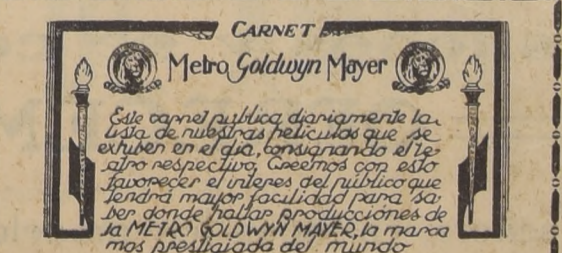 CARNET
Metro Goldwyn Mayer
Este carnet publica diariamente la
lista de nuestras peliculas que se
exhiben en el dia, consignando el te-
atro respectivo. Creemos con esto
favorecer el interes del publico que
tendrá mayor facilidad para sa-
ber donde hallar producciónes de
la METRO GOLDWYN MAYER, la marca
mas prestigiada del mundo